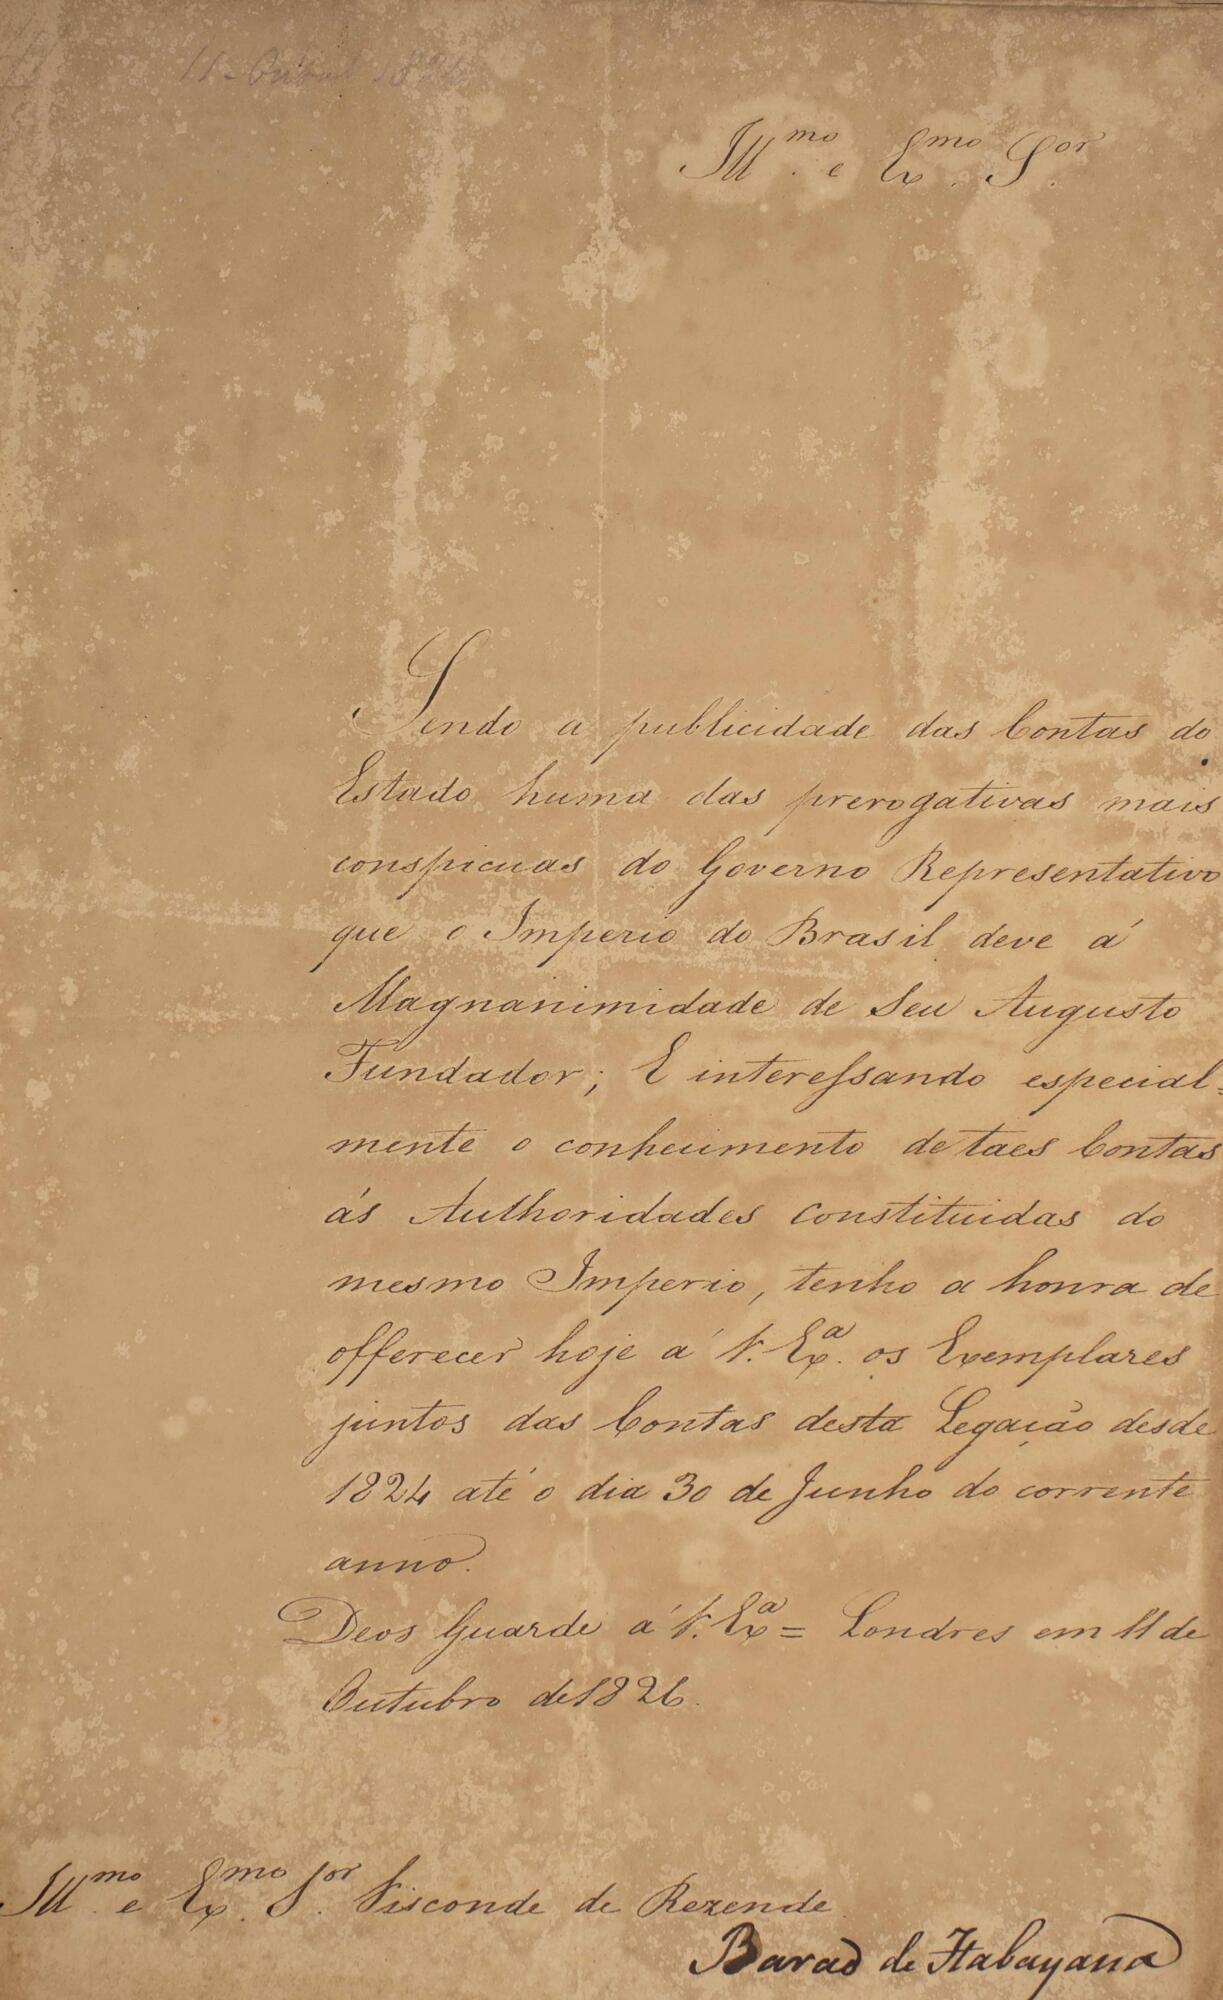 11 - Outub 1826
Ill^mo. e Ex^mo. S^or.
Sendo a publicidade das Contas do
Estado huma das prerogativas mais
conspicuas do Governo Representativo
que o Imperio do Brasil deve á
Magnanimidade de Seu Augusto
Fundador; E interessando especial=
mente o conhecimento de taes Contas
ás Authoridades constituidas do
mesmo Imperio, tenho a honra de
offerecer hoje á V. Ex^a. os Exemplares
juntos das Contas desta Legação desde
1824 até o dia 30 de Junho do corrente
anno.
Deos Guarde á V. Ex^a = Londres em 11 de
Outubro de 1826.
Ill^mo. e Ex^mo. S^or. Visconde de Rezende
Barao de Itabayana